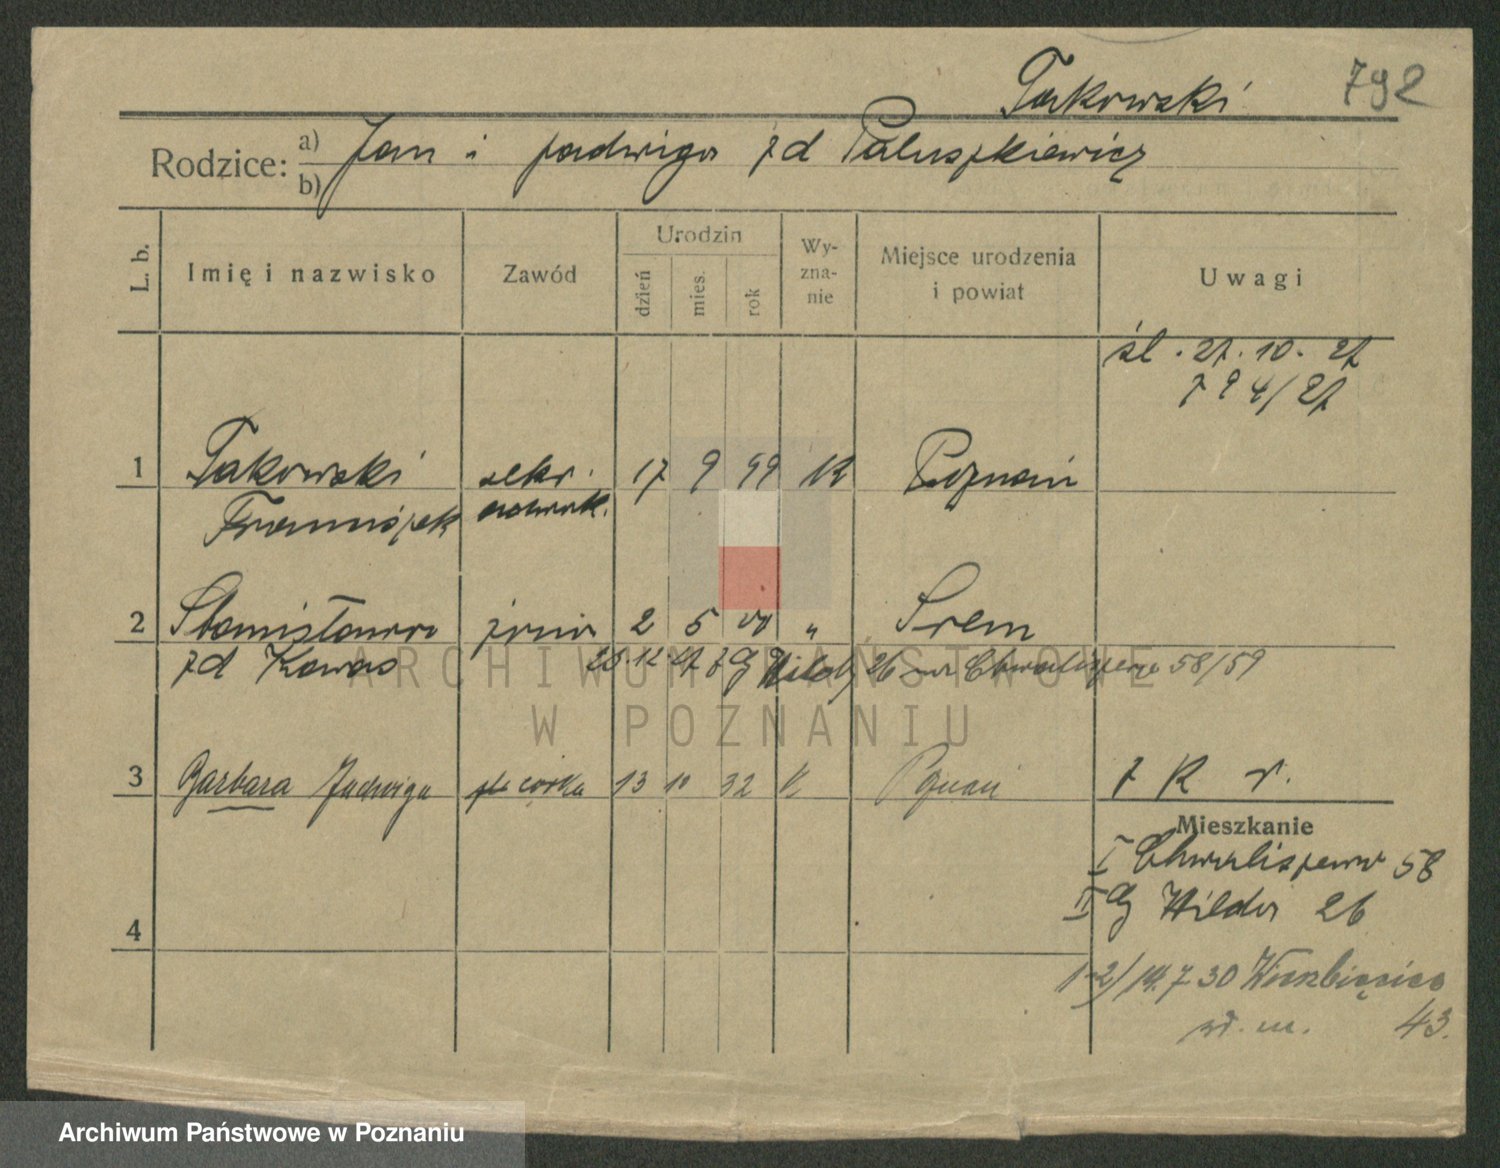 Takowski
792
Rodzice: a) Jan i Jadwiga zd Paluszkiewicz
b)
L. b.
Imię i nazwisko
Zawód
Urodzin
dzień
mies.
rok
Wy-
zna-
nie
Miejsce urodzenia
i powiat
Uwagi
śl. 27. 10. 27
794/27
1 Takowski sekr. 17 9 99 K Poznań
Franciszek
2 Stanisława żona 2 5 00 " Śrem
zd Kawas 28.12.27 z G Wildy 26 na Chwaliszewo 58/59
3 Barbara Jadwiga córka 13 10 32 K Poznań
7 K r.
Mieszkanie
I Chwaliszewo 58
II G Wilda 26
4
1-2/14.7.30 Wierzbięcice
43.
ARCHIWUM PAŃSTWOWE
W POZNANIU
Archiwum Państwowe w Poznaniu